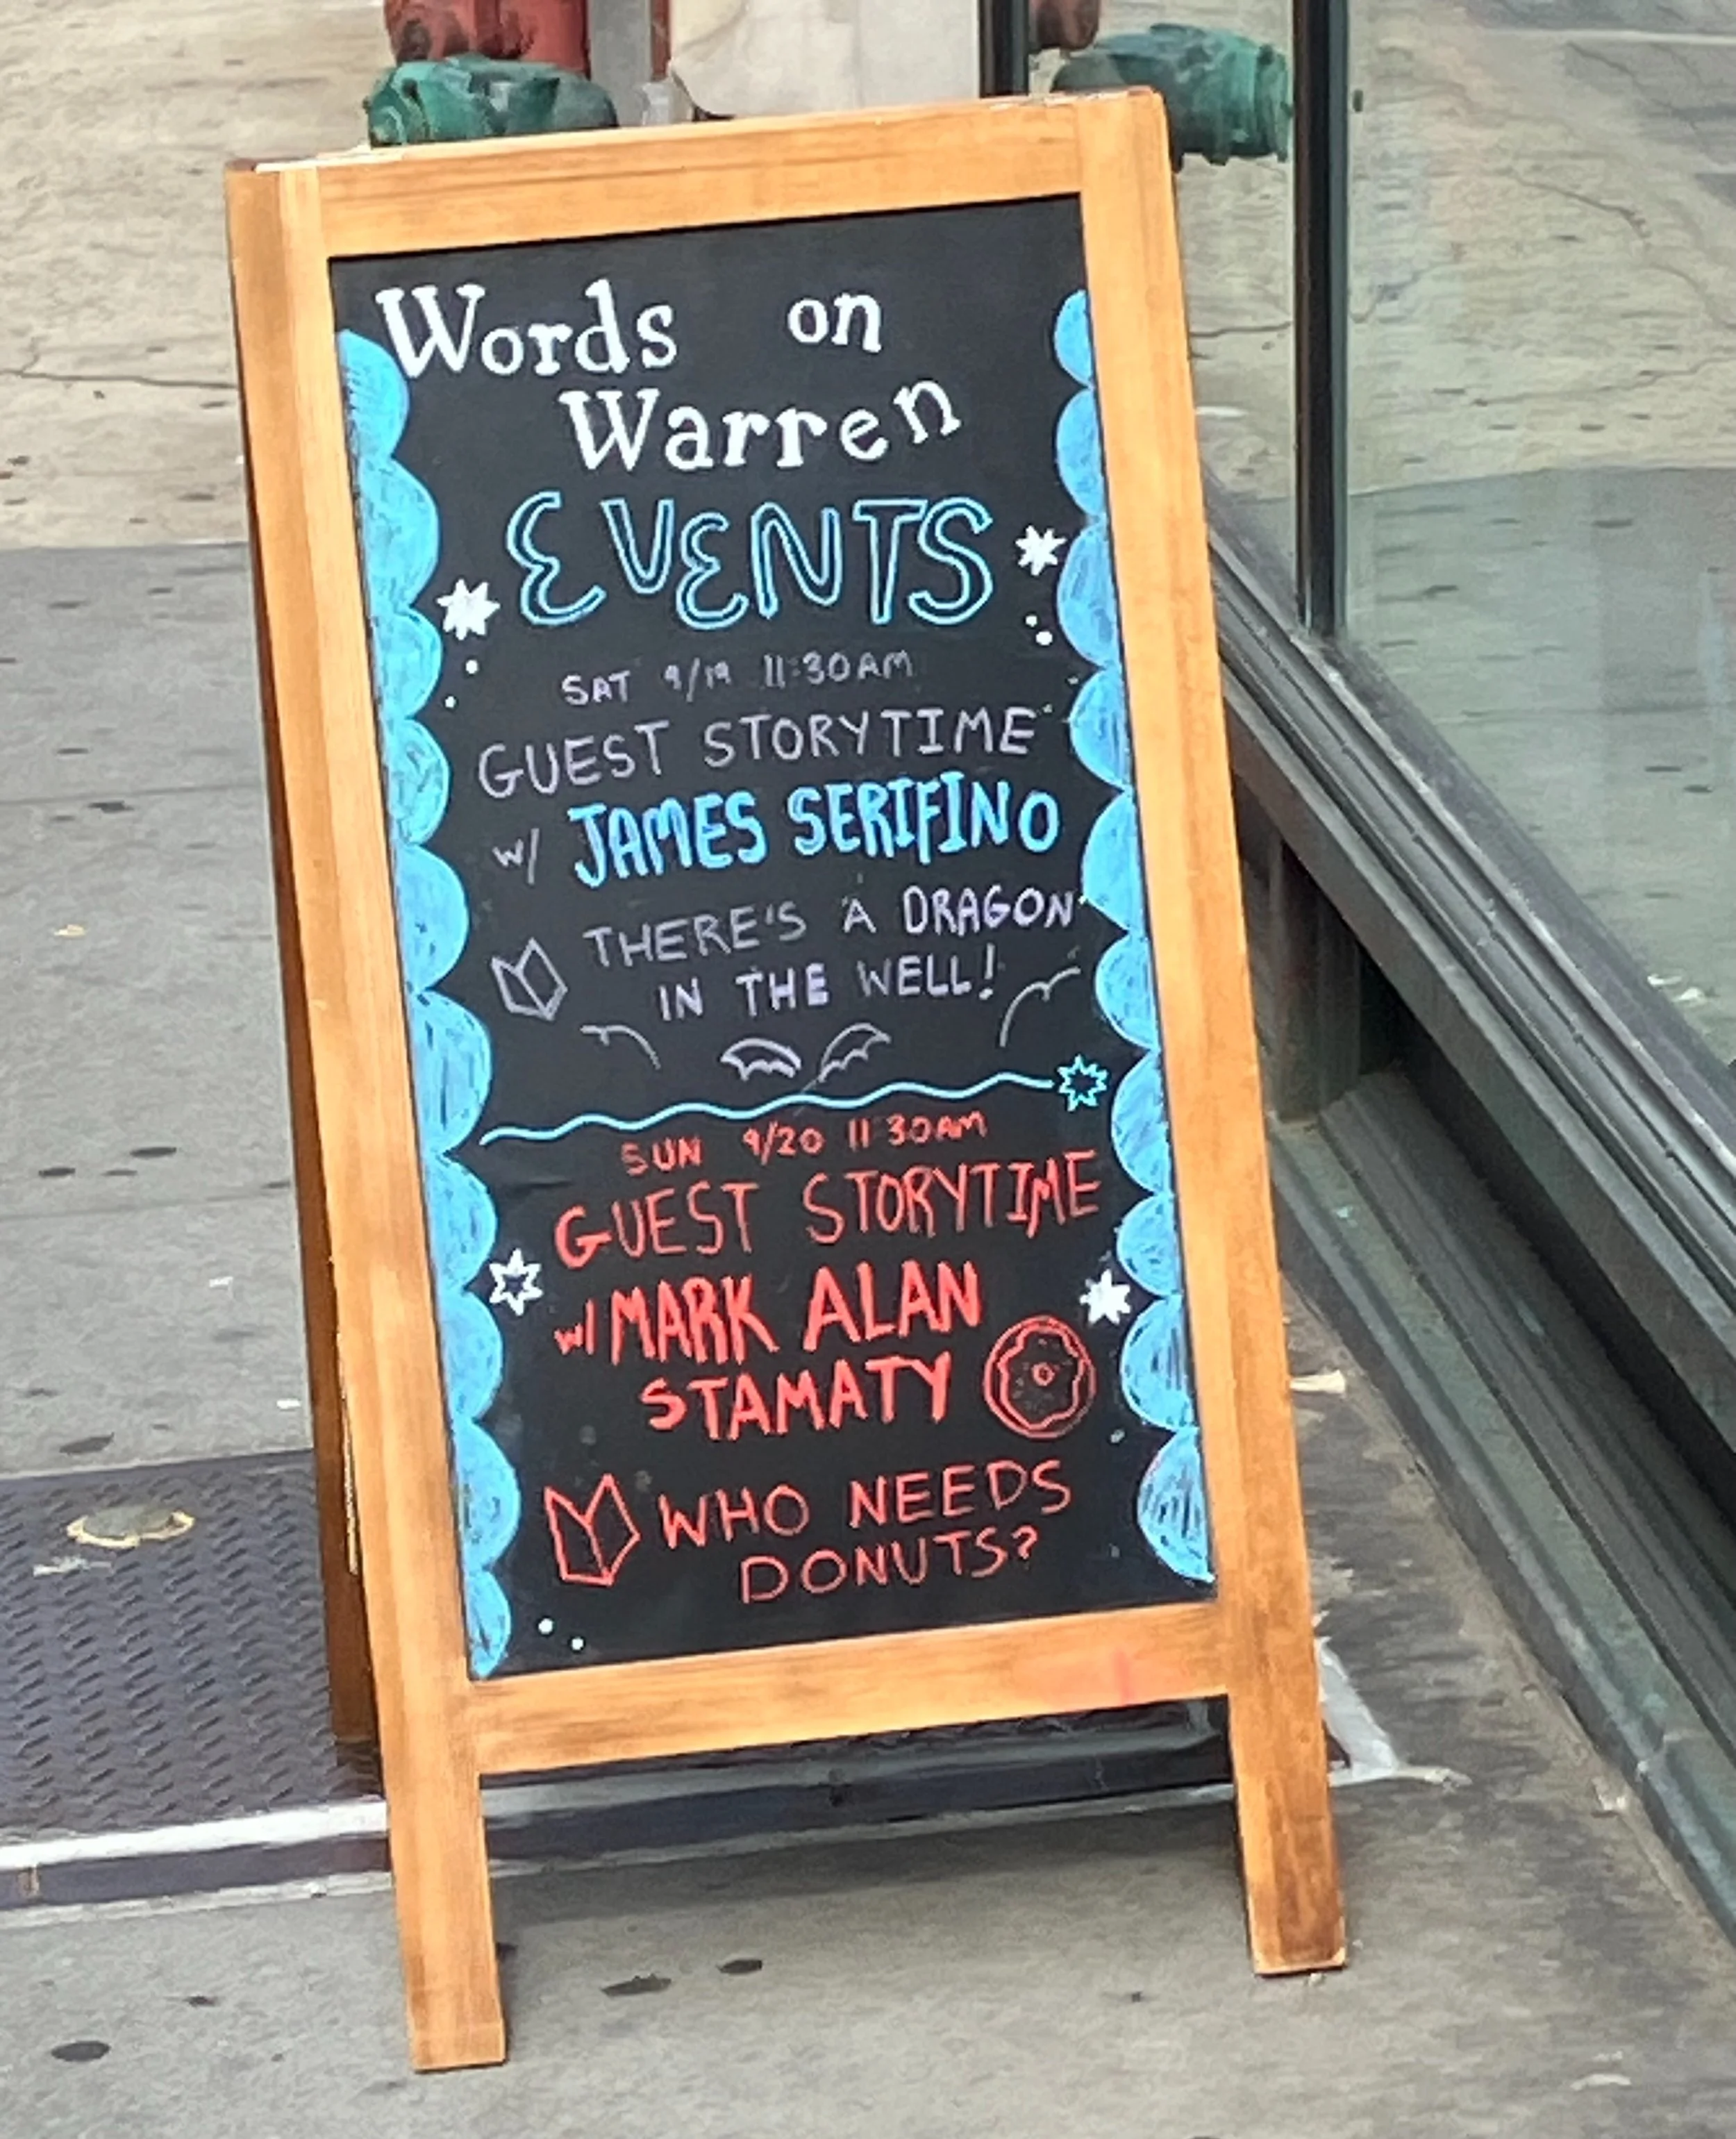 Words on
Warren
EVENTS
SAT 9/19 11:30AM
GUEST STORYTIME
w/ JAMES SERIFINO
THERE'S A DRAGON
IN THE WELL!
SUN 9/20 11 30AM
GUEST STORYTIME
w/ MARK ALAN
STAMATY
WHO NEEDS
DONUTS?